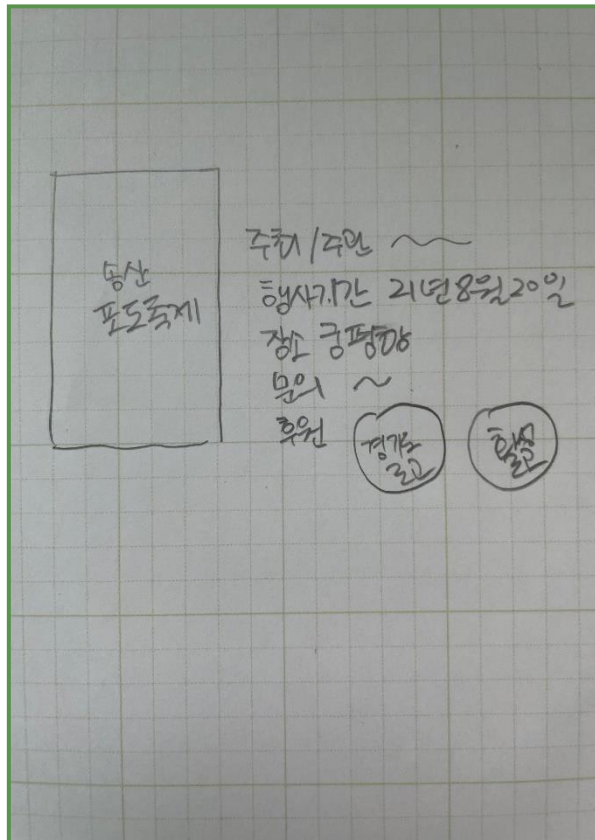 송산
포도축제
주최/주관 ~
행사기간 21년 8월 20일
장소 궁평항
문의 ~
후원
경기도
로고
화성
로고